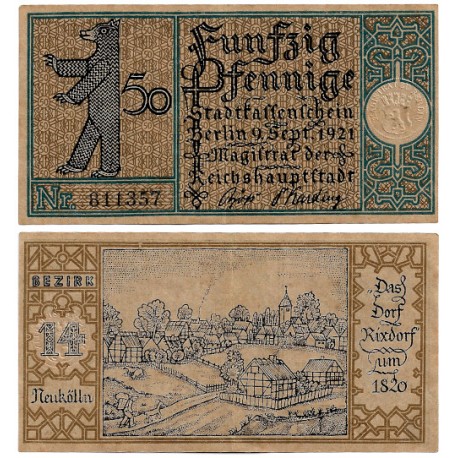 50
Fünfzig
Pfennige
Stadtkassenschein
Berlin 9. Sept. 1921
Magistrat der
Reichshauptstadt
Nr. 811357
BEZIRK
14
Neukölln
Das
Dorf
Rixdorf
um
1820